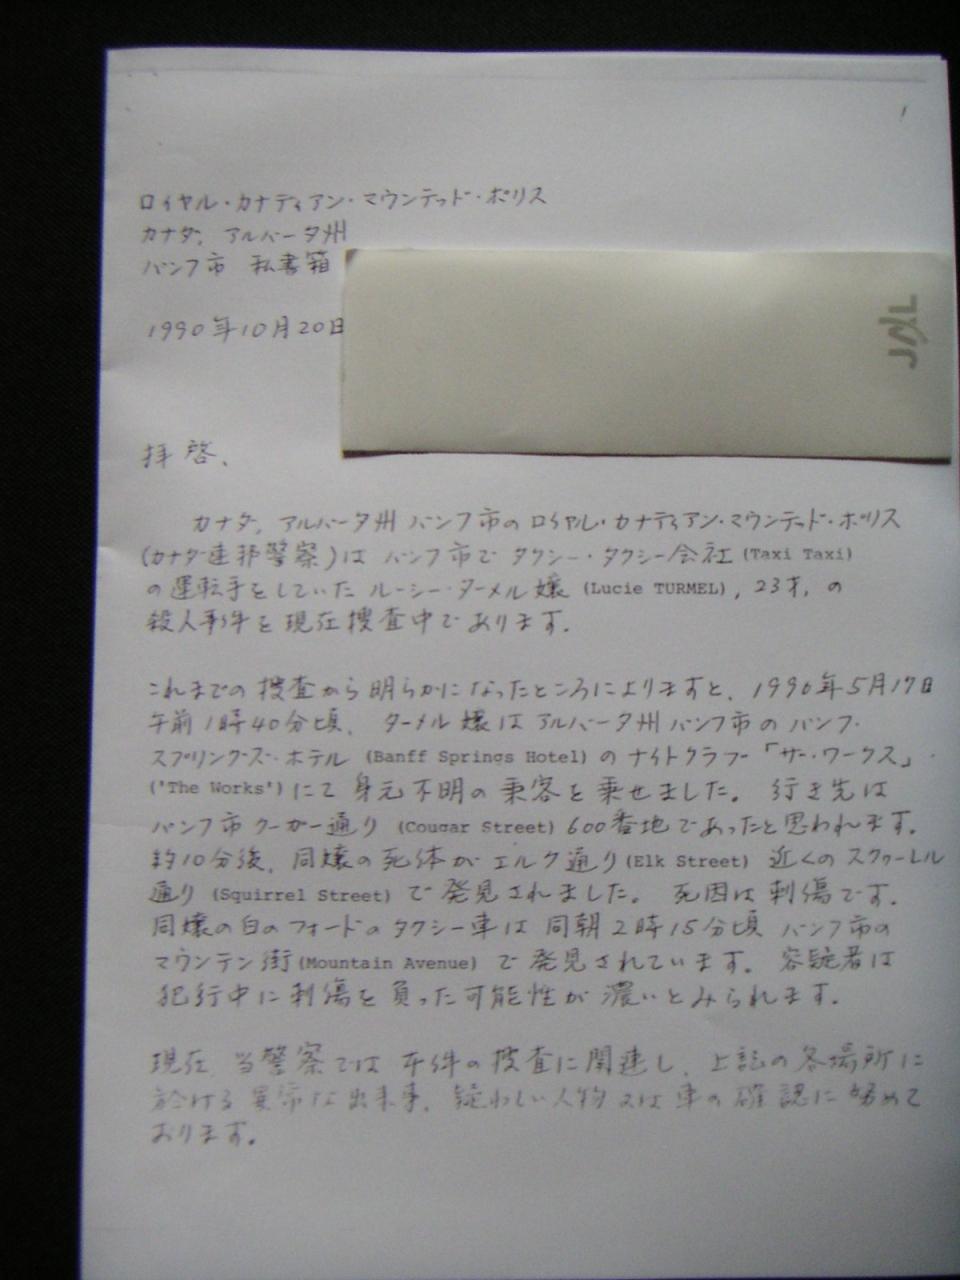 1
ロイヤル・カナディアン・マウンテッド・ポリス
カナダ, アルバータ州
バンフ市 私書箱
JAL
1990年10月20日
拝啓、
カナダ, アルバータ州 バンフ市の ロイヤル・カナディアン・マウンテッド・ポリス
(カナダ連邦警察)は バンフ市で タクシー・タクシー会社 (Taxi Taxi)
の運転手をしていた ルーシー・ターメル嬢 (Lucie TURMEL), 23才, の
殺人事件を現在捜査中であります.
これまでの捜査から明らかになったところによりますと、1990年5月17日
午前1時40分頃、ターメル嬢はアルバータ州バンフ市のバンフ・
スプリングズ・ホテル (Banff Springs Hotel) のナイトクラブ「ザ・ワークス」
('The Works')にて身元不明の乗客を乗せました。行き先は
バンフ市クーガー通り (Cougar Street) 600番地であったと思われます.
約10分後, 同嬢の死体がエルク通り(Elk Street) 近くのスクゥーレル
通り(Squirrel Street) で発見されました。死因は刺傷です.
同嬢の白のフォードのタクシー車は同朝2時15分頃 バンフ市の
マウンテン街(Mountain Avenue) で発見されています. 容疑者は
犯行中に刺傷を負った可能性が濃いとみられます.
現在 当警察では本件の捜査に関連し, 上記の各場所に
於ける異常な出来事, 疑わしい人物又は車の確認に努めて
おります.